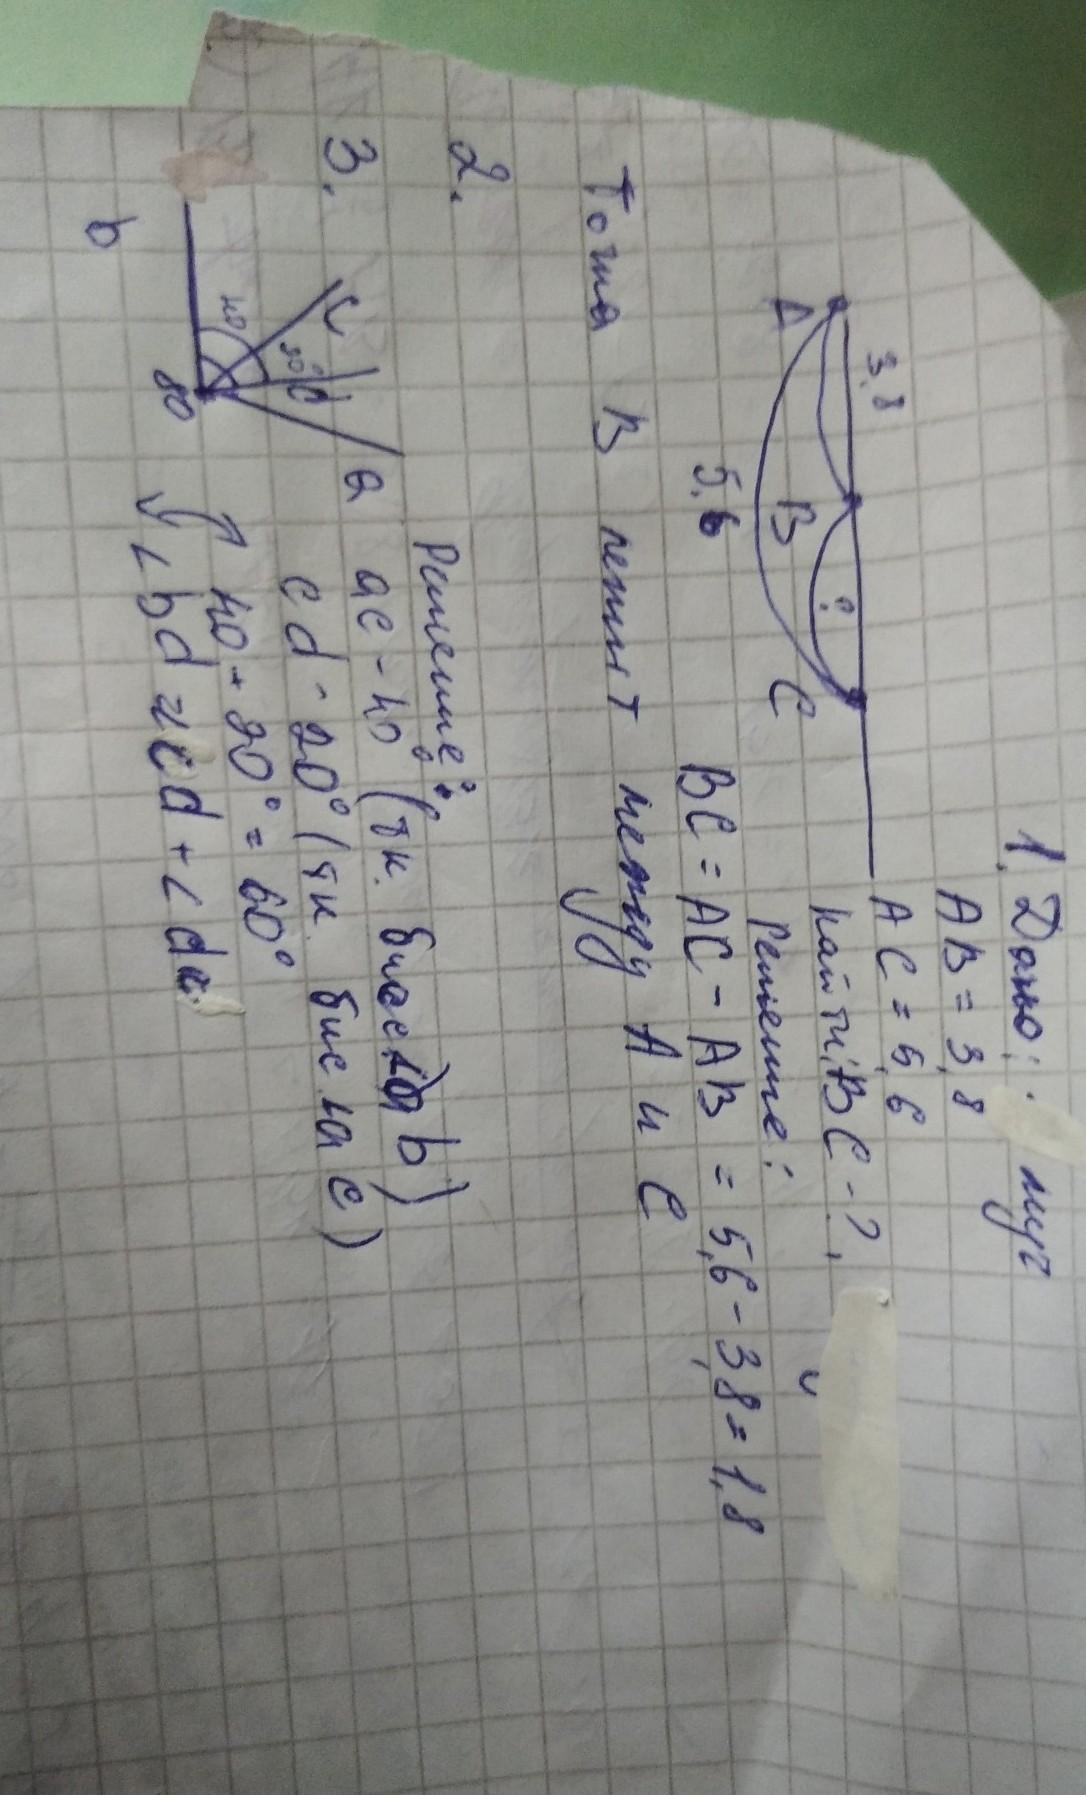 1. Дано: луч
AB = 3,8
AC = 5,6
Найти: BC - ?
Решение:
BC = AC - AB = 5,6 - 3,8 = 1,8
3,8
A B C
5,6
Точка B лежит между A и C
2.
3.
Решение:
ac - 40° (тк. бис ∠a b)
cd - 20° (тк. бис ∠a c)
40 + 20° = 60°
∠bd = ∠cd + ∠da
c d a
40 20°
b
80